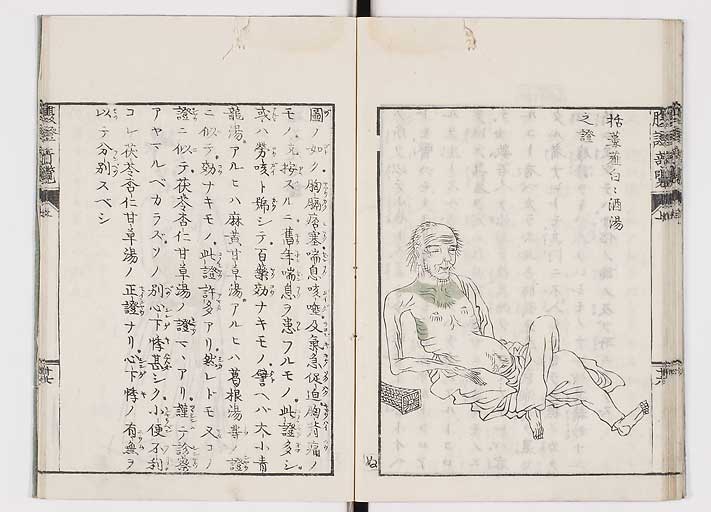 腹證奇覽
括蔞薤白白酒湯
之證
圖ノ如ク胸膈痞塞喘息咳唾及氣急促迫胸背痛ノ
モノ。
按スルニ舊年喘息ヲ患フルモノ。此證多シ。
或ハ勞咳ト
シテ百藥効ナキモノ。譬ヘバ大小青
龍湯。アルヒハ麻黄甘草湯。アルヒハ葛根湯等ノ證
ニ似テ効ナキモノ。此證許多アリ然レトモ又コノ
證ニ似テ茯苓杏仁甘草湯ノ證マヽアリ謹テ診察
アヤマルベカラズソノ別心下悸甚シク小便不利
コレ茯苓杏仁甘草湯ノ正證ナリ。心下悸ノ有無ヲ
以テ分別スベシ